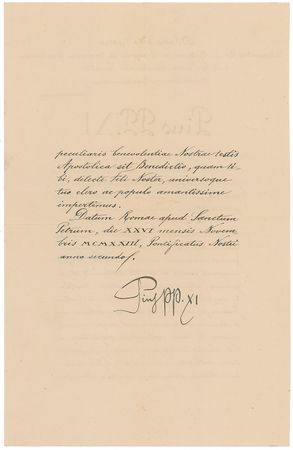 peculiaris benevolentiae Nostrae testis
Apostolica sit Benedictio, quam ti-
bi, dilecte Fili Noster, universoque
tuo clero ac populo amantissime
impertimus.
Datum Romae apud Sanctum
Petrum, die XXVI mensis Novem
bris MCMXXIII, Pontificatus Nostri
anno secundo.
Pius PP. XI